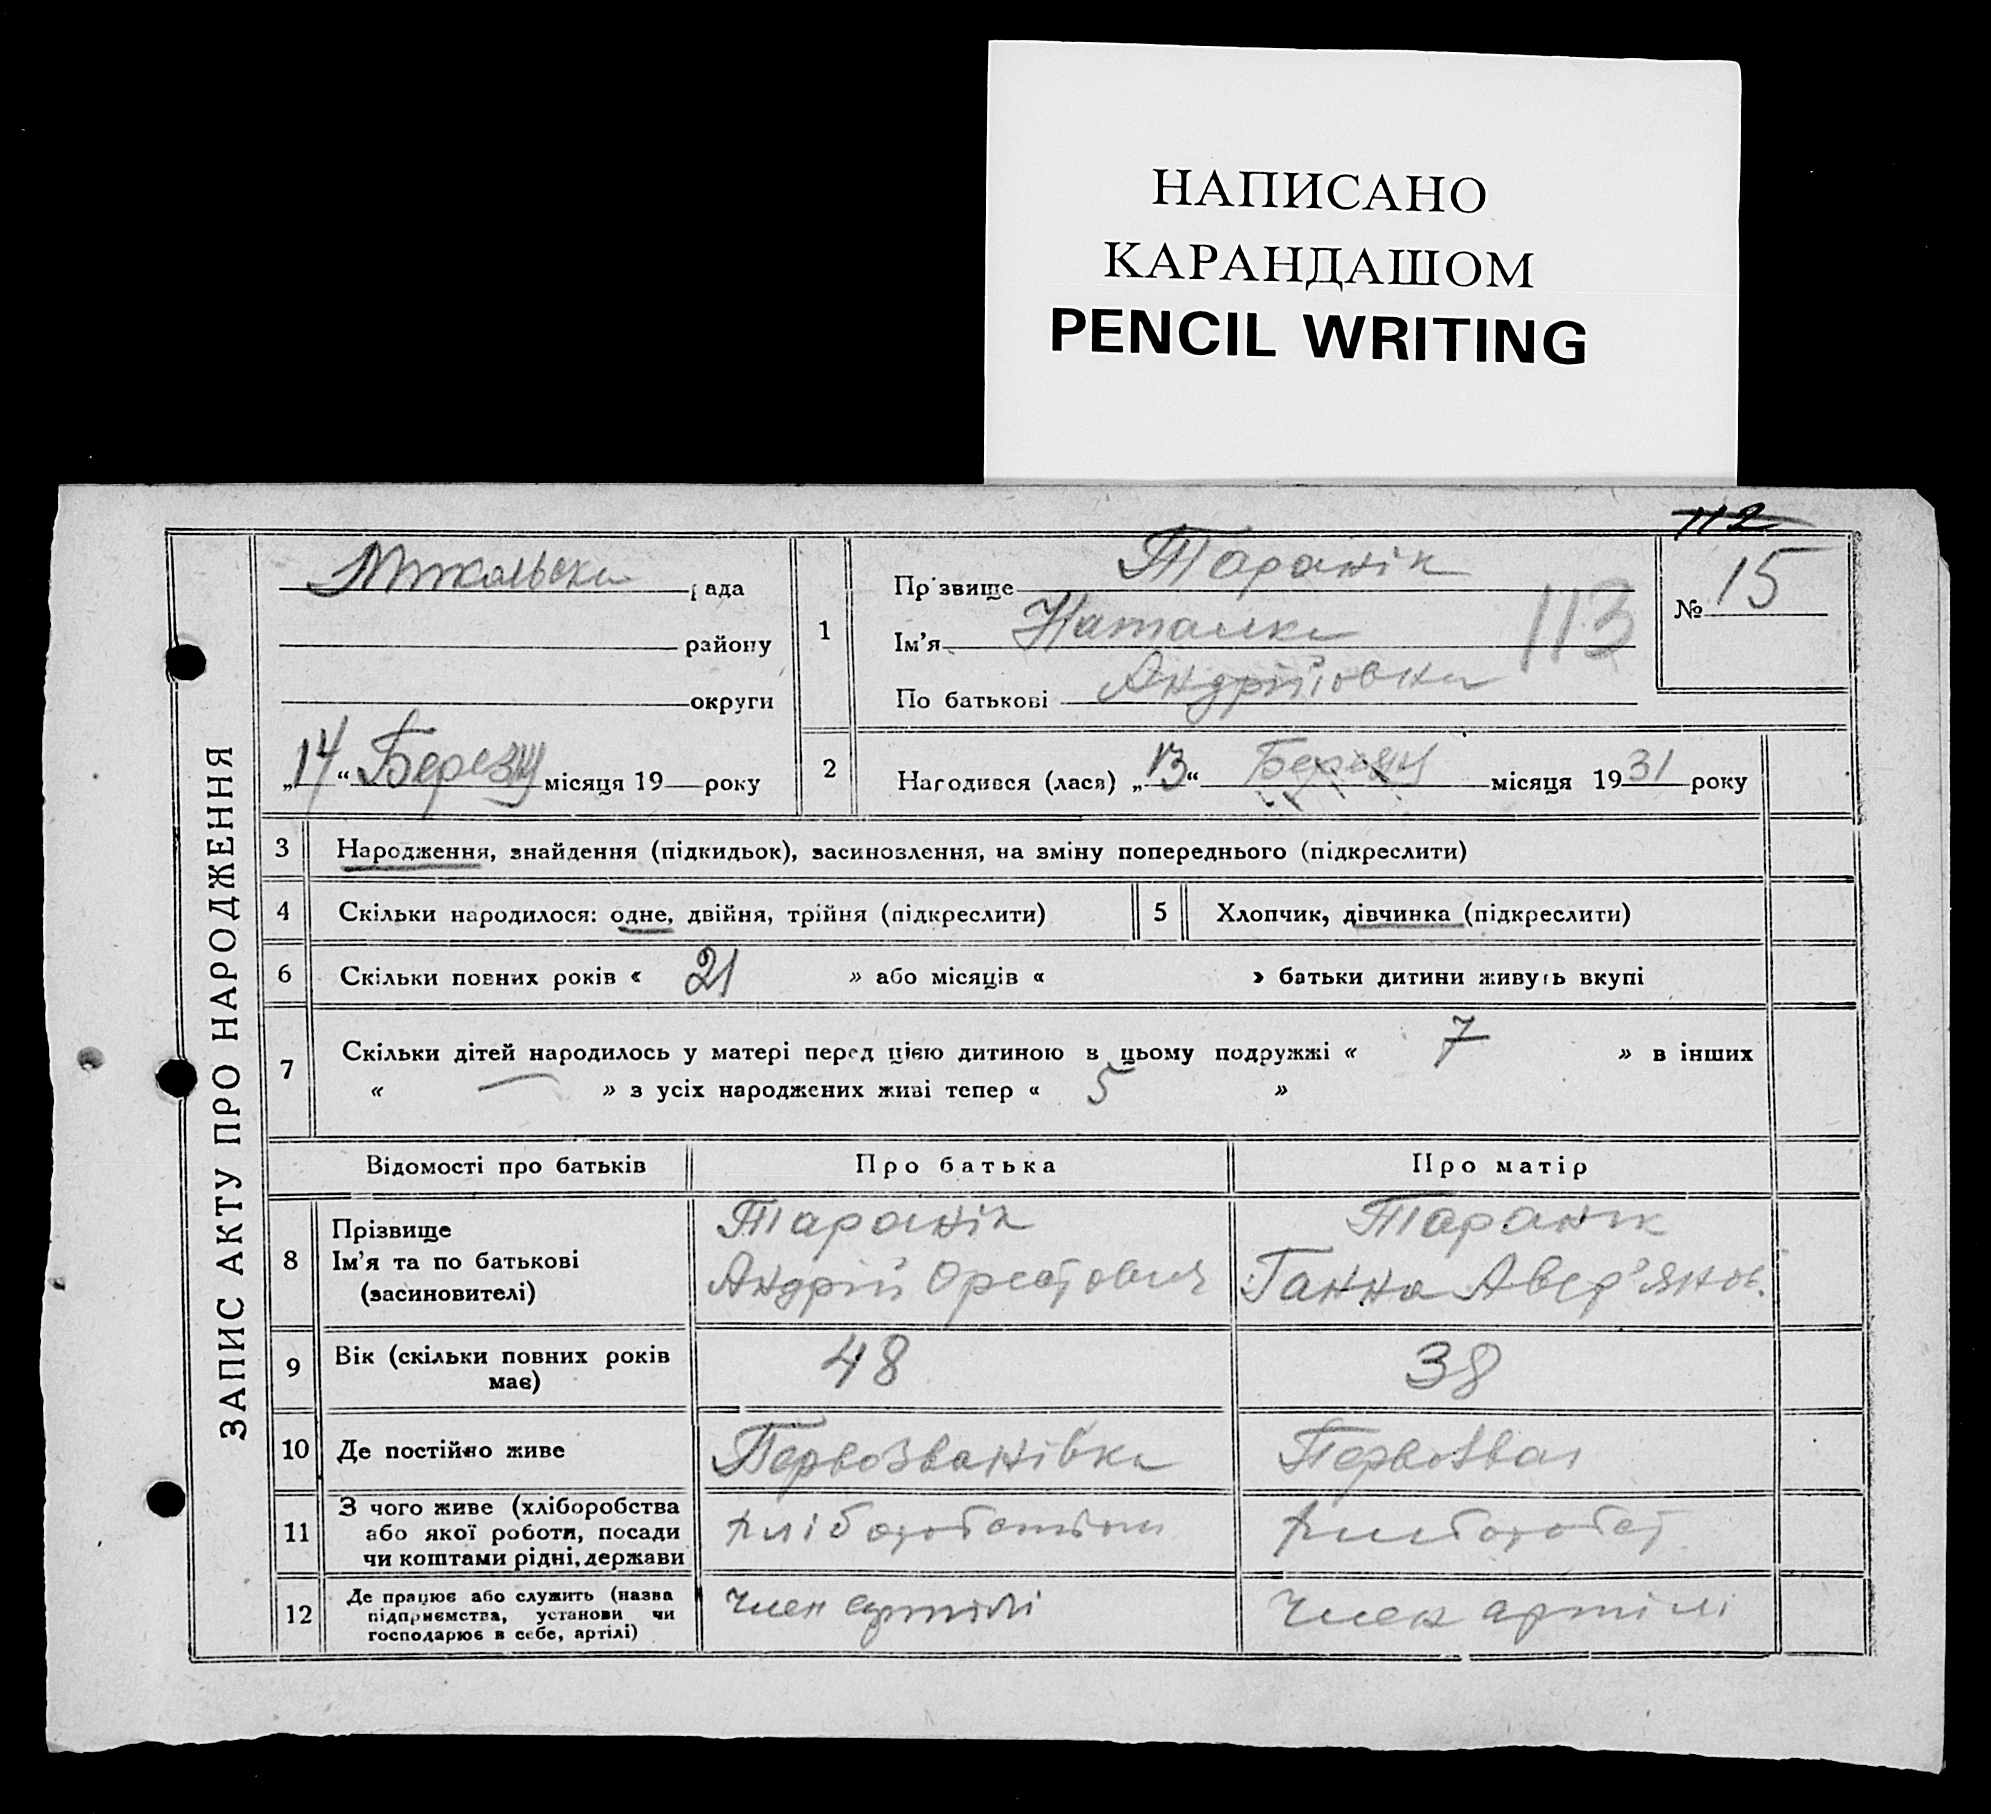 НАПИСАНО
КАРАНДАШОМ
PENCIL WRITING
112
ЗАПИС АКТУ ПРО НАРОДЖЕННЯ
Микольска рада
району
округи
„14“ Березня місяця 19 року
1
Прізвище Таранік
Ім’я Наталка
По батькові Андріївна
113
№ 15
2 Народився (лася) „13“ Березня місяця 1931 року
3 Народження, знайдення (підкидьок), засиновлення, на зміну попереднього (підкреслити)
4 Скільки народилося: одне, двійня, трійня (підкреслити) 5 Хлопчик, дівчинка (підкреслити)
6 Скільки повних років « 21 » або місяців « » батьки дитини живуть вкупі
7 Скільки дітей народилось у матері перед цією дитиною в цьому подружжі « 7 » в інших
« — » з усіх народжених живі тепер « 5 »
Відомості про батьків Про батька Про матір
8 Прізвище
Ім’я та по батькові
(засиновителі)
Таранік
Андрій Орестович
Таранік
Ганна Авер’янов.
9 Вік (скільки повних років
має)
48
38
10 Де постійно живе Первозванівка Первозван
11 З чого живе (хліборобства
або якої роботи, посади
чи коштами рідні, держави
12 Де працює або служить (назва
підприємства, установи чи
господарює в себе, артілі)
член артілі
Член артілі